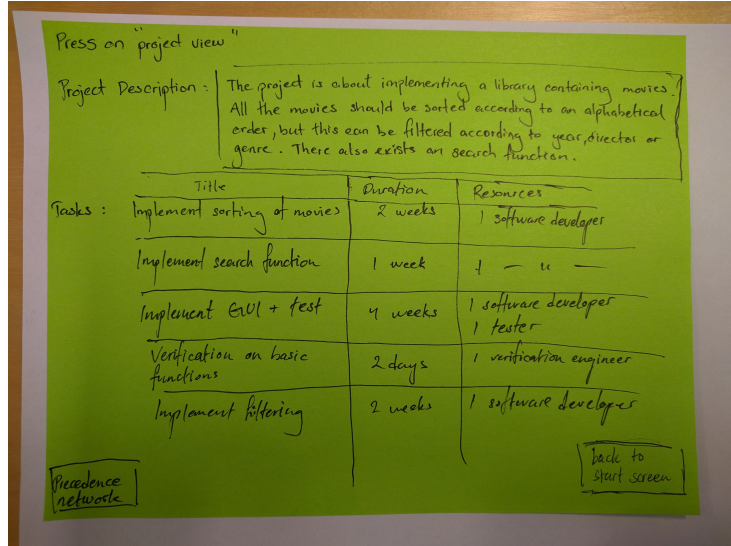 Press on "project view"
Project Description : The project is about implementing a library containing movies.
All the movies should be sorted according to an alphabetical
order, but this can be filtered according to year, director or
genre. There also exists an search function.
Title Duration Resources
Tasks : Implement sorting of movies 2 weeks 1 software developer
Implement search function 1 week 1 — " —
Implement GUI + test 4 weeks 1 software developer
1 tester
Verification on basic 2 days 1 verification engineer
functions
Implement filtering 2 weeks 1 software developer
Precedence
network
back to
start screen